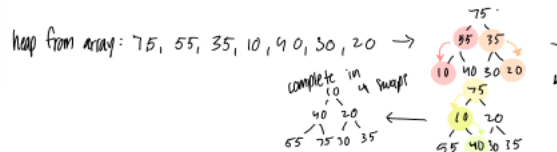 heap from array: 75, 55, 35, 10, 40, 30, 20 →
75
55 35
10 40 30 20
75
10 20
55 40 30 35
←
complete in 4 swaps
10
40 20
55 75 30 35